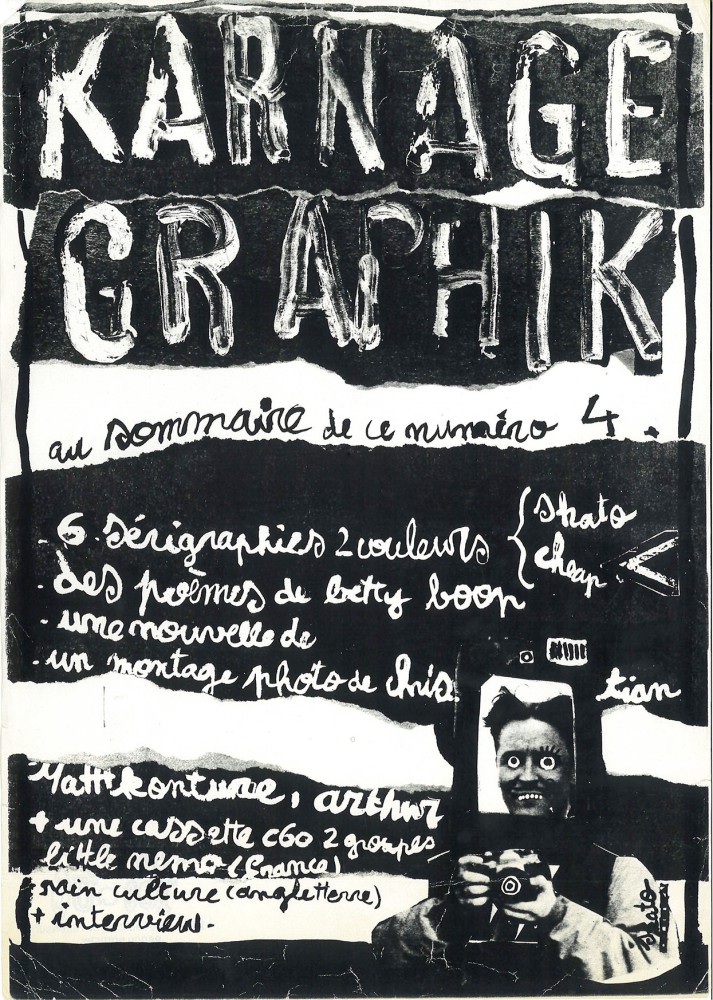 KARNAGE
GRAPHIK
au sommaire de ce numéro 4.
. 6 sérigraphies 2 couleurs { shato
cheap
. des poèmes de betty boop
. une nouvelle de
. un montage photo de chris tian
Matt konture, arthur
+ une cassette c60 2 groupes
little nemo (france)
+ rain culture (angletterre)
+ interview.